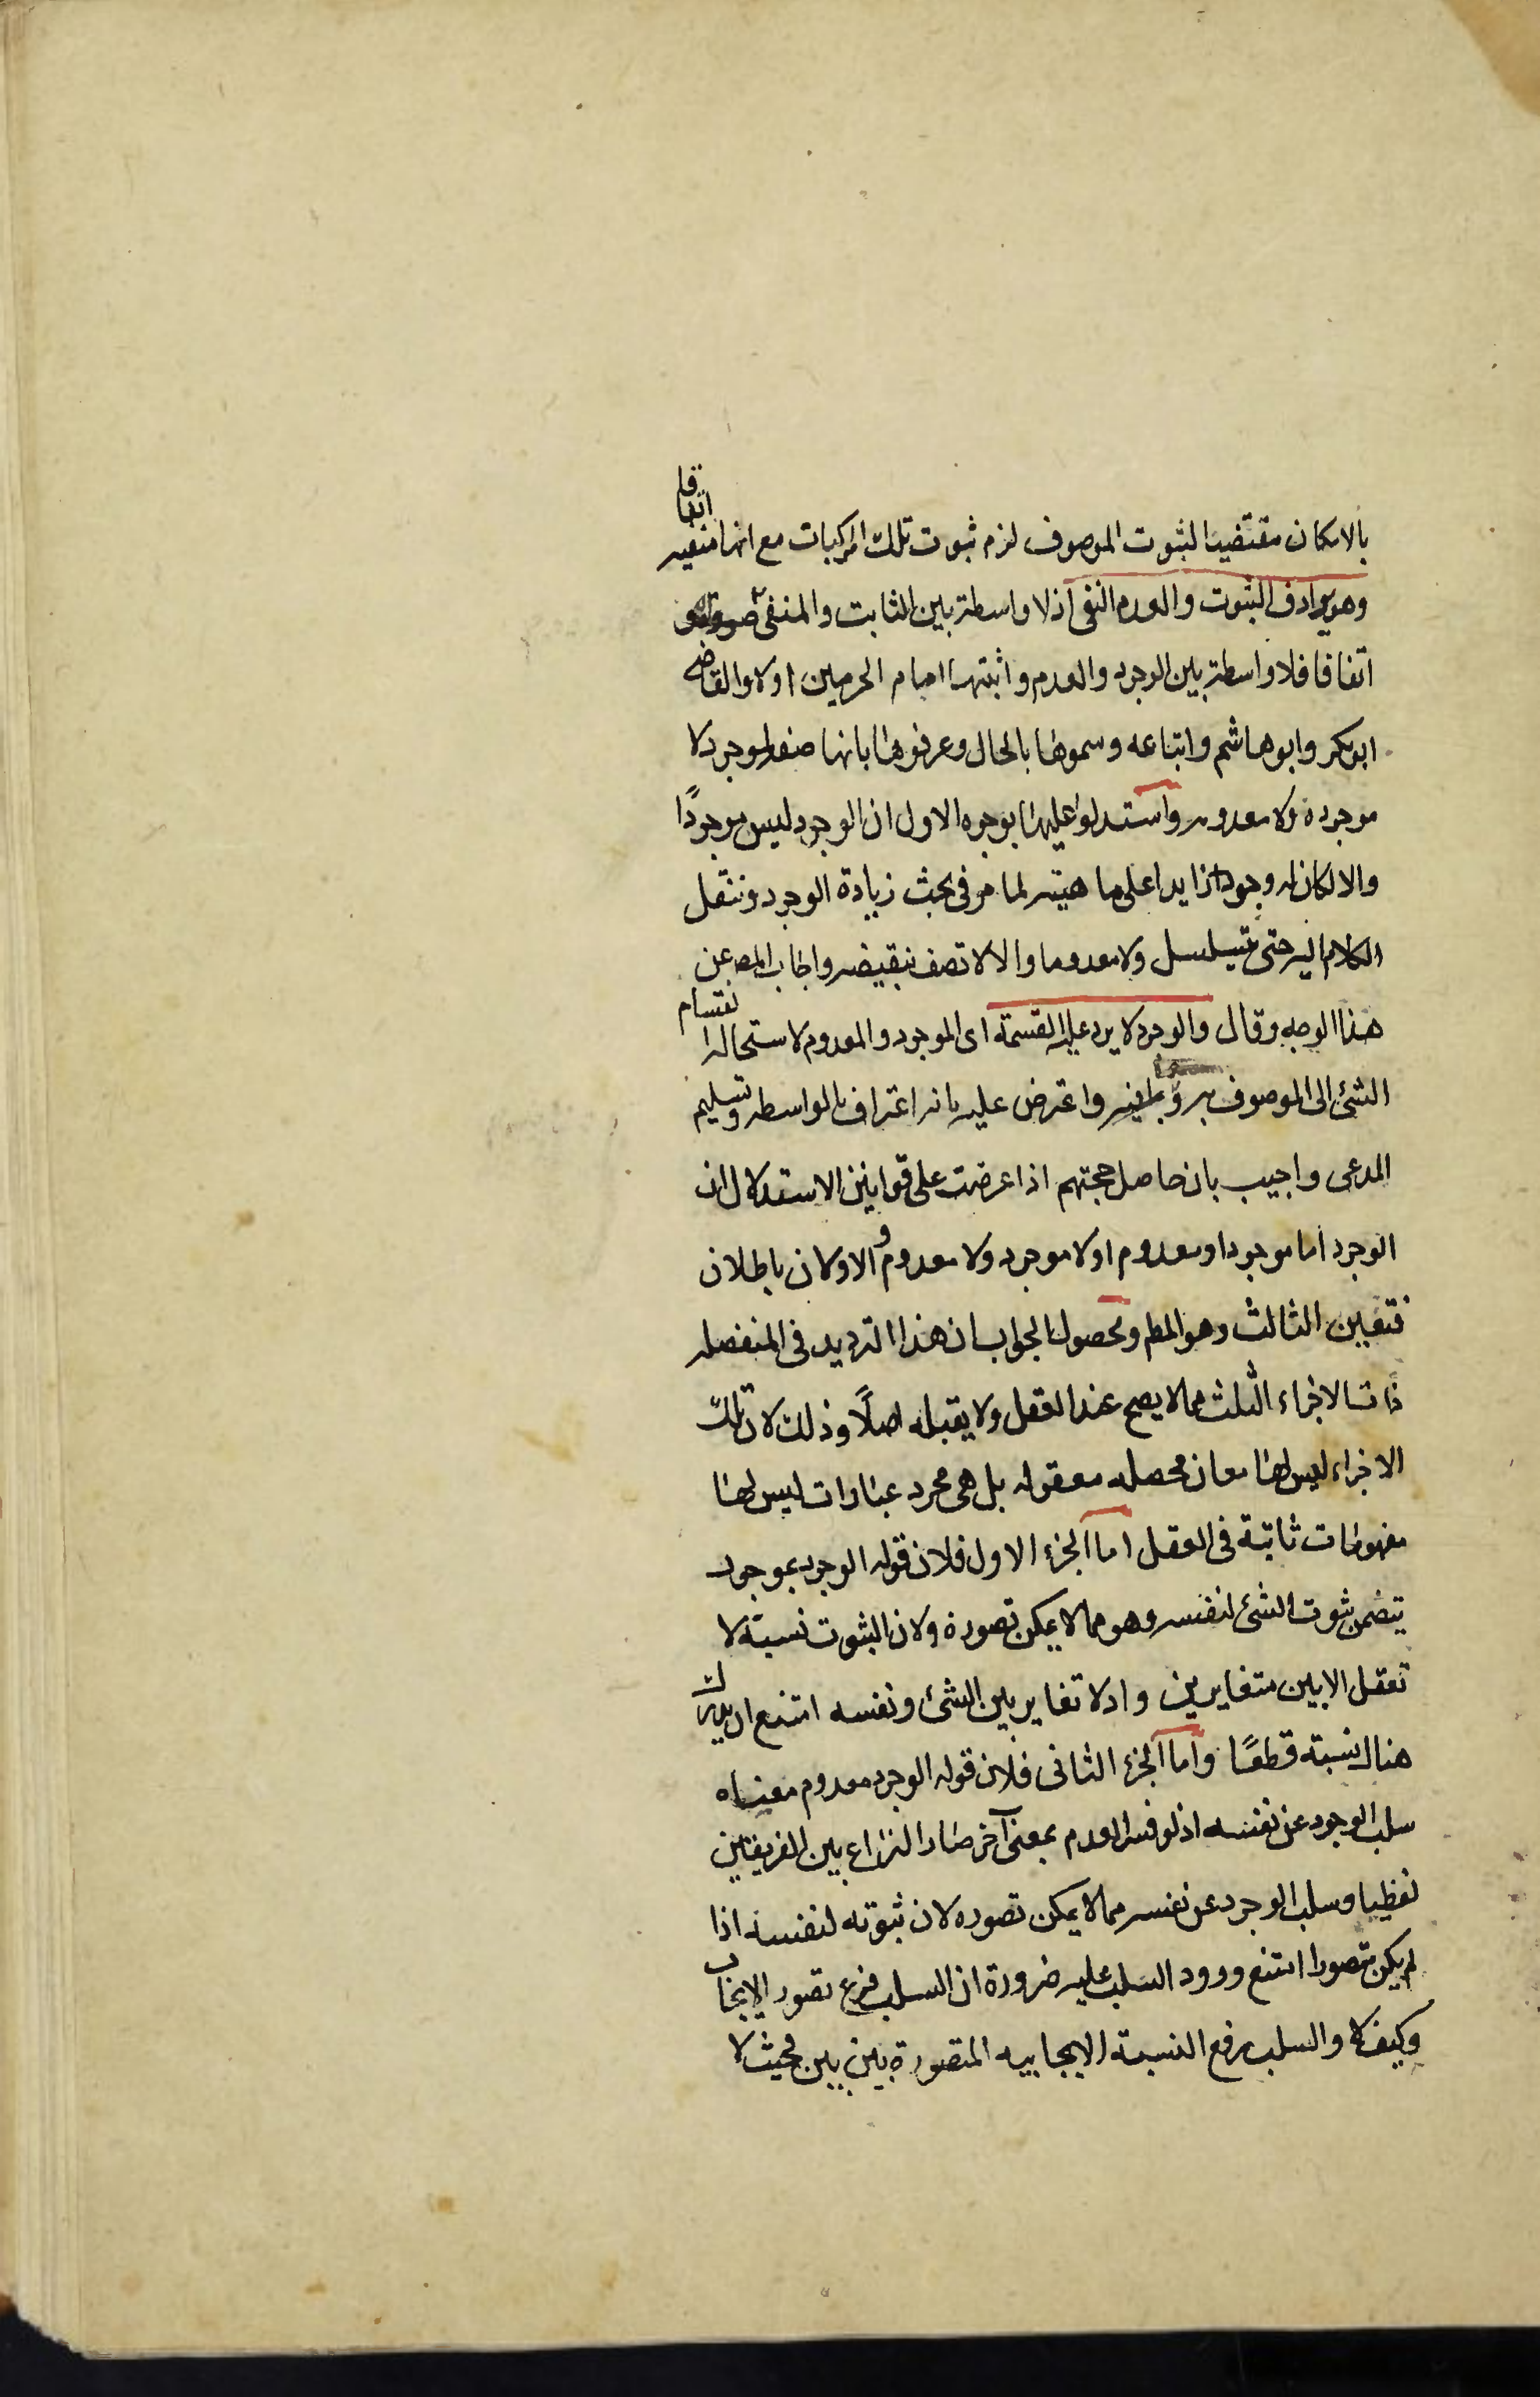 بالامكان مقتضيا لثبوت الموصوف لزم ثبوت تلك المركبات مع انها منفيه اتفاقا
وهو يرادف الثبوت والعدم النفى اذ لا واسطة بين الثابت والمنفى
اتفاقا فلا واسطة بين الوجود والعدم واثبتها امام الحرمين اولا والقاضى
ابوبكر وابو هاشم واتباعه وسموها بالحال وعرفوها بانها صفة لموجود لا
موجودة ولا معدومه واستدلوا عليها بوجوه الاول ان الوجود ليس موجودًا
والا لكان له وجود زايدا على ماهيته لما مر فى بحث زيادة الوجود وننقل
الكلام اليه حتى يتسلسل ولا معدوما والا لاتصف بنقيضه واجاب المص عن
هذا الوجه وقال والوجود لا يرد عليه القسمة اى الموجود والمعدوم لاستحالة انقسام
الشئ الى الموصوف به و واعترض عليه بانه اعتراف بالواسطه وتسليم
المدعى واجيب بان حاصل حجتهم اذا عرضت على قوانين الاستدلال ان
الوجود اما موجود او معدوم او لا موجود ولا معدوم والاولان باطلان
فتعين الثالث وهو المط ومحصول الجواب ان هذا الترديد فى المنفصله
ذات الاجزاء الثلث مما لا يصح عند العقل ولا يقبله اصلًا وذلك لان تلك
الاجزاء ليس لها معان محصله معقوله بل هى مجرد عبارات ليس لها
مفهومات ثابتة فى العقل اما الجزء الاول فلان قوله الوجود موجود
يتضمن ثبوت الشئ لنفسه وهو مما لا يمكن تصوره ولان الثبوت نسبة لا
تعقل الا بين متغايرين واذ لا تغاير بين الشئ ونفسه امتنع ان يدرك
هناك نسبته قطعًا واما الجزء الثانى فلان قوله الوجود معدوم معناه
سلب الوجود عن نفسه اذ لو فسر العدم بمعنى آخر صار النزاع بين الفريقين
لفظيا وسلب الوجود عن نفسه مما لا يمكن تصوره لان ثبوته لنفسه اذا
لم يكن متصورا امتنع ورود السلب عليه ضرورة ان السلب فرع تصور الايجاب
وكيف لا والسلب رفع النسبة الايجابيه المتصورة بين بين فحيث لا